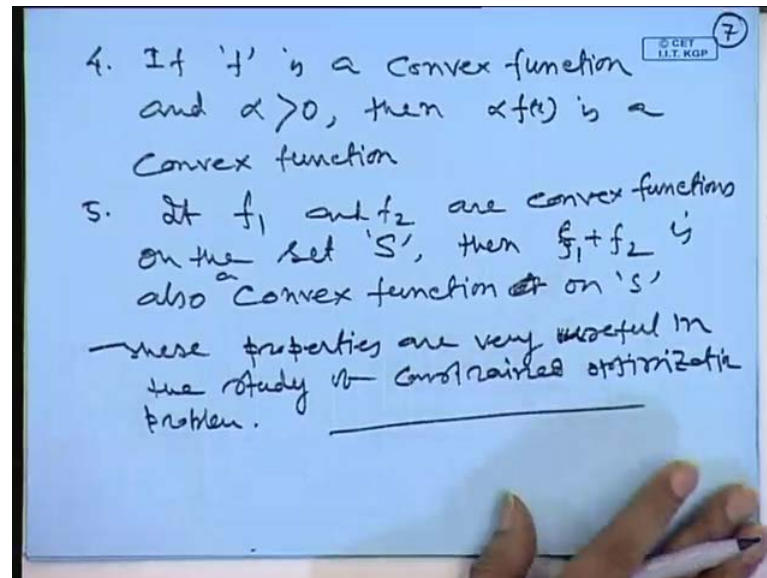 7
© CET
I.I.T. KGP
4. If 'f' is a convex function
and α > 0, then α f(x) is a
convex function
5. If f₁ and f₂ are convex functions
on the set 'S', then f₁ + f₂ is
also a convex function on 's'
These properties are very useful in
the study of constrained optimization
problem.